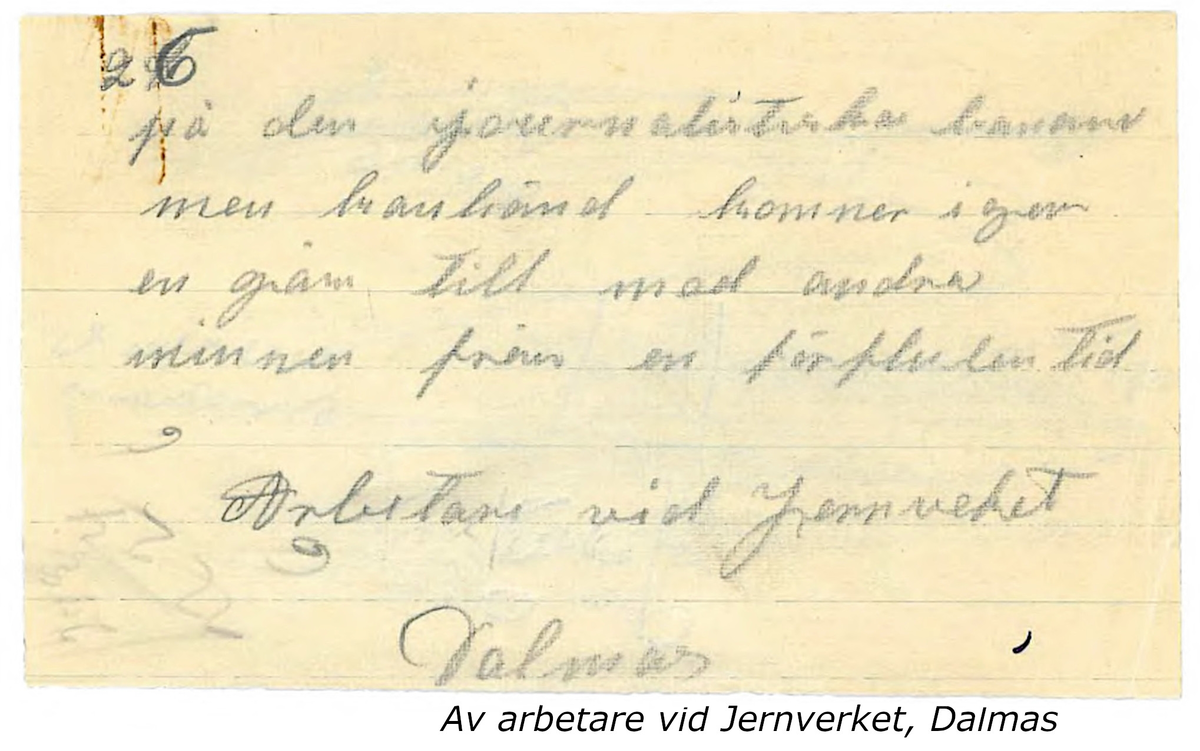 26
på den journalistiska banan
men kanhänd komner igen
en gån till mad andra
minnen från en förfluten tid
Arbetare vid Jernveket
Dalmas
Av arbetare vid Jernverket, Dalmas